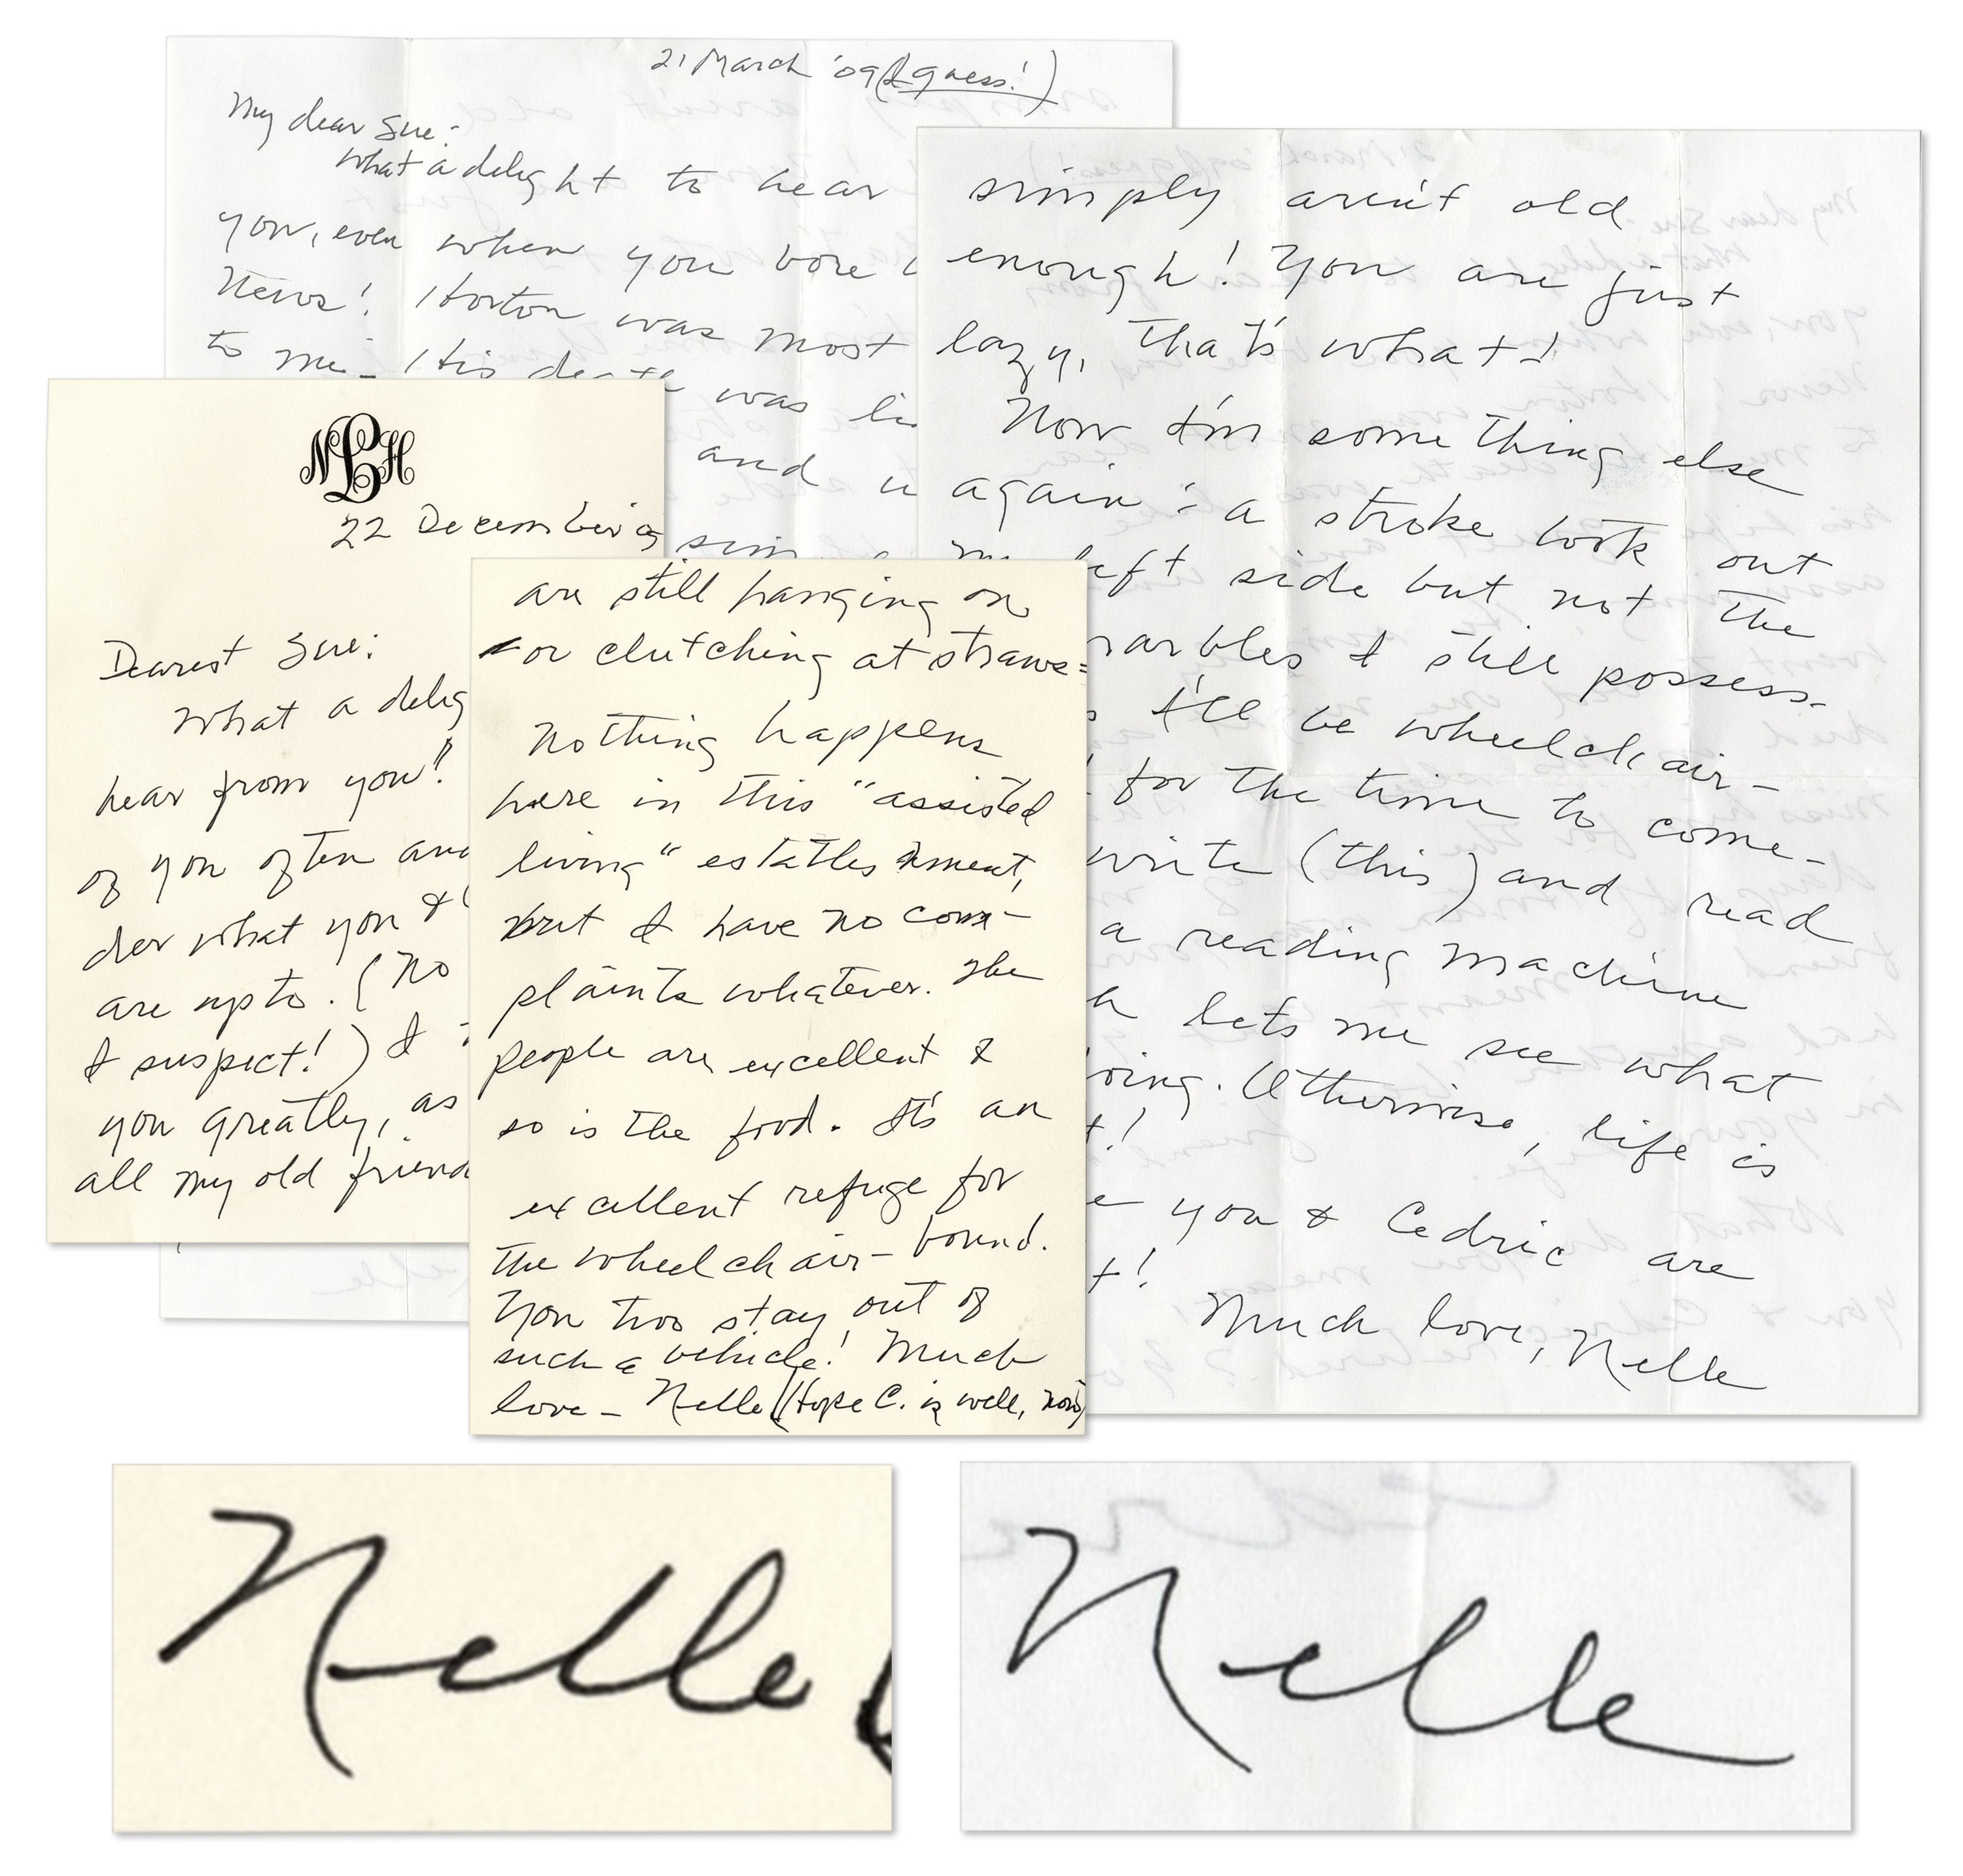 21 March '09 (I guess!)
My dear Sue:
What a delight to hear
you, even when you bore
News! Horton was most
to me - His death was
and
simply aren't old
enough! You are just
lazy, that's what!
Now I'm something else
again: a stroke took out
left side but not the
marbles I still possess.
I'll be wheelchair-
for the time to come-
write (this) and read
a reading machine
lets me see what
Otherwise, life is
you & Cedric are
Much love, Nelle
NLH
22 December
Dearest Sue:
What a delig
hear from you!!
of you often and
der what you &
are up to. (No
I suspect!) I
you greatly, as
all my old friend
are still hanging on
or clutching at straws=
Nothing happens
here in this "assisted
living" establishment,
but I have no com-
plaints whatever. The
people are excellent &
so is the food. It's an
excellent refuge for
the wheelchair-bound.
You two stay out of
such a vehicle! Much
love - Nelle (Hope C. is well, now)
Nelle
Nelle